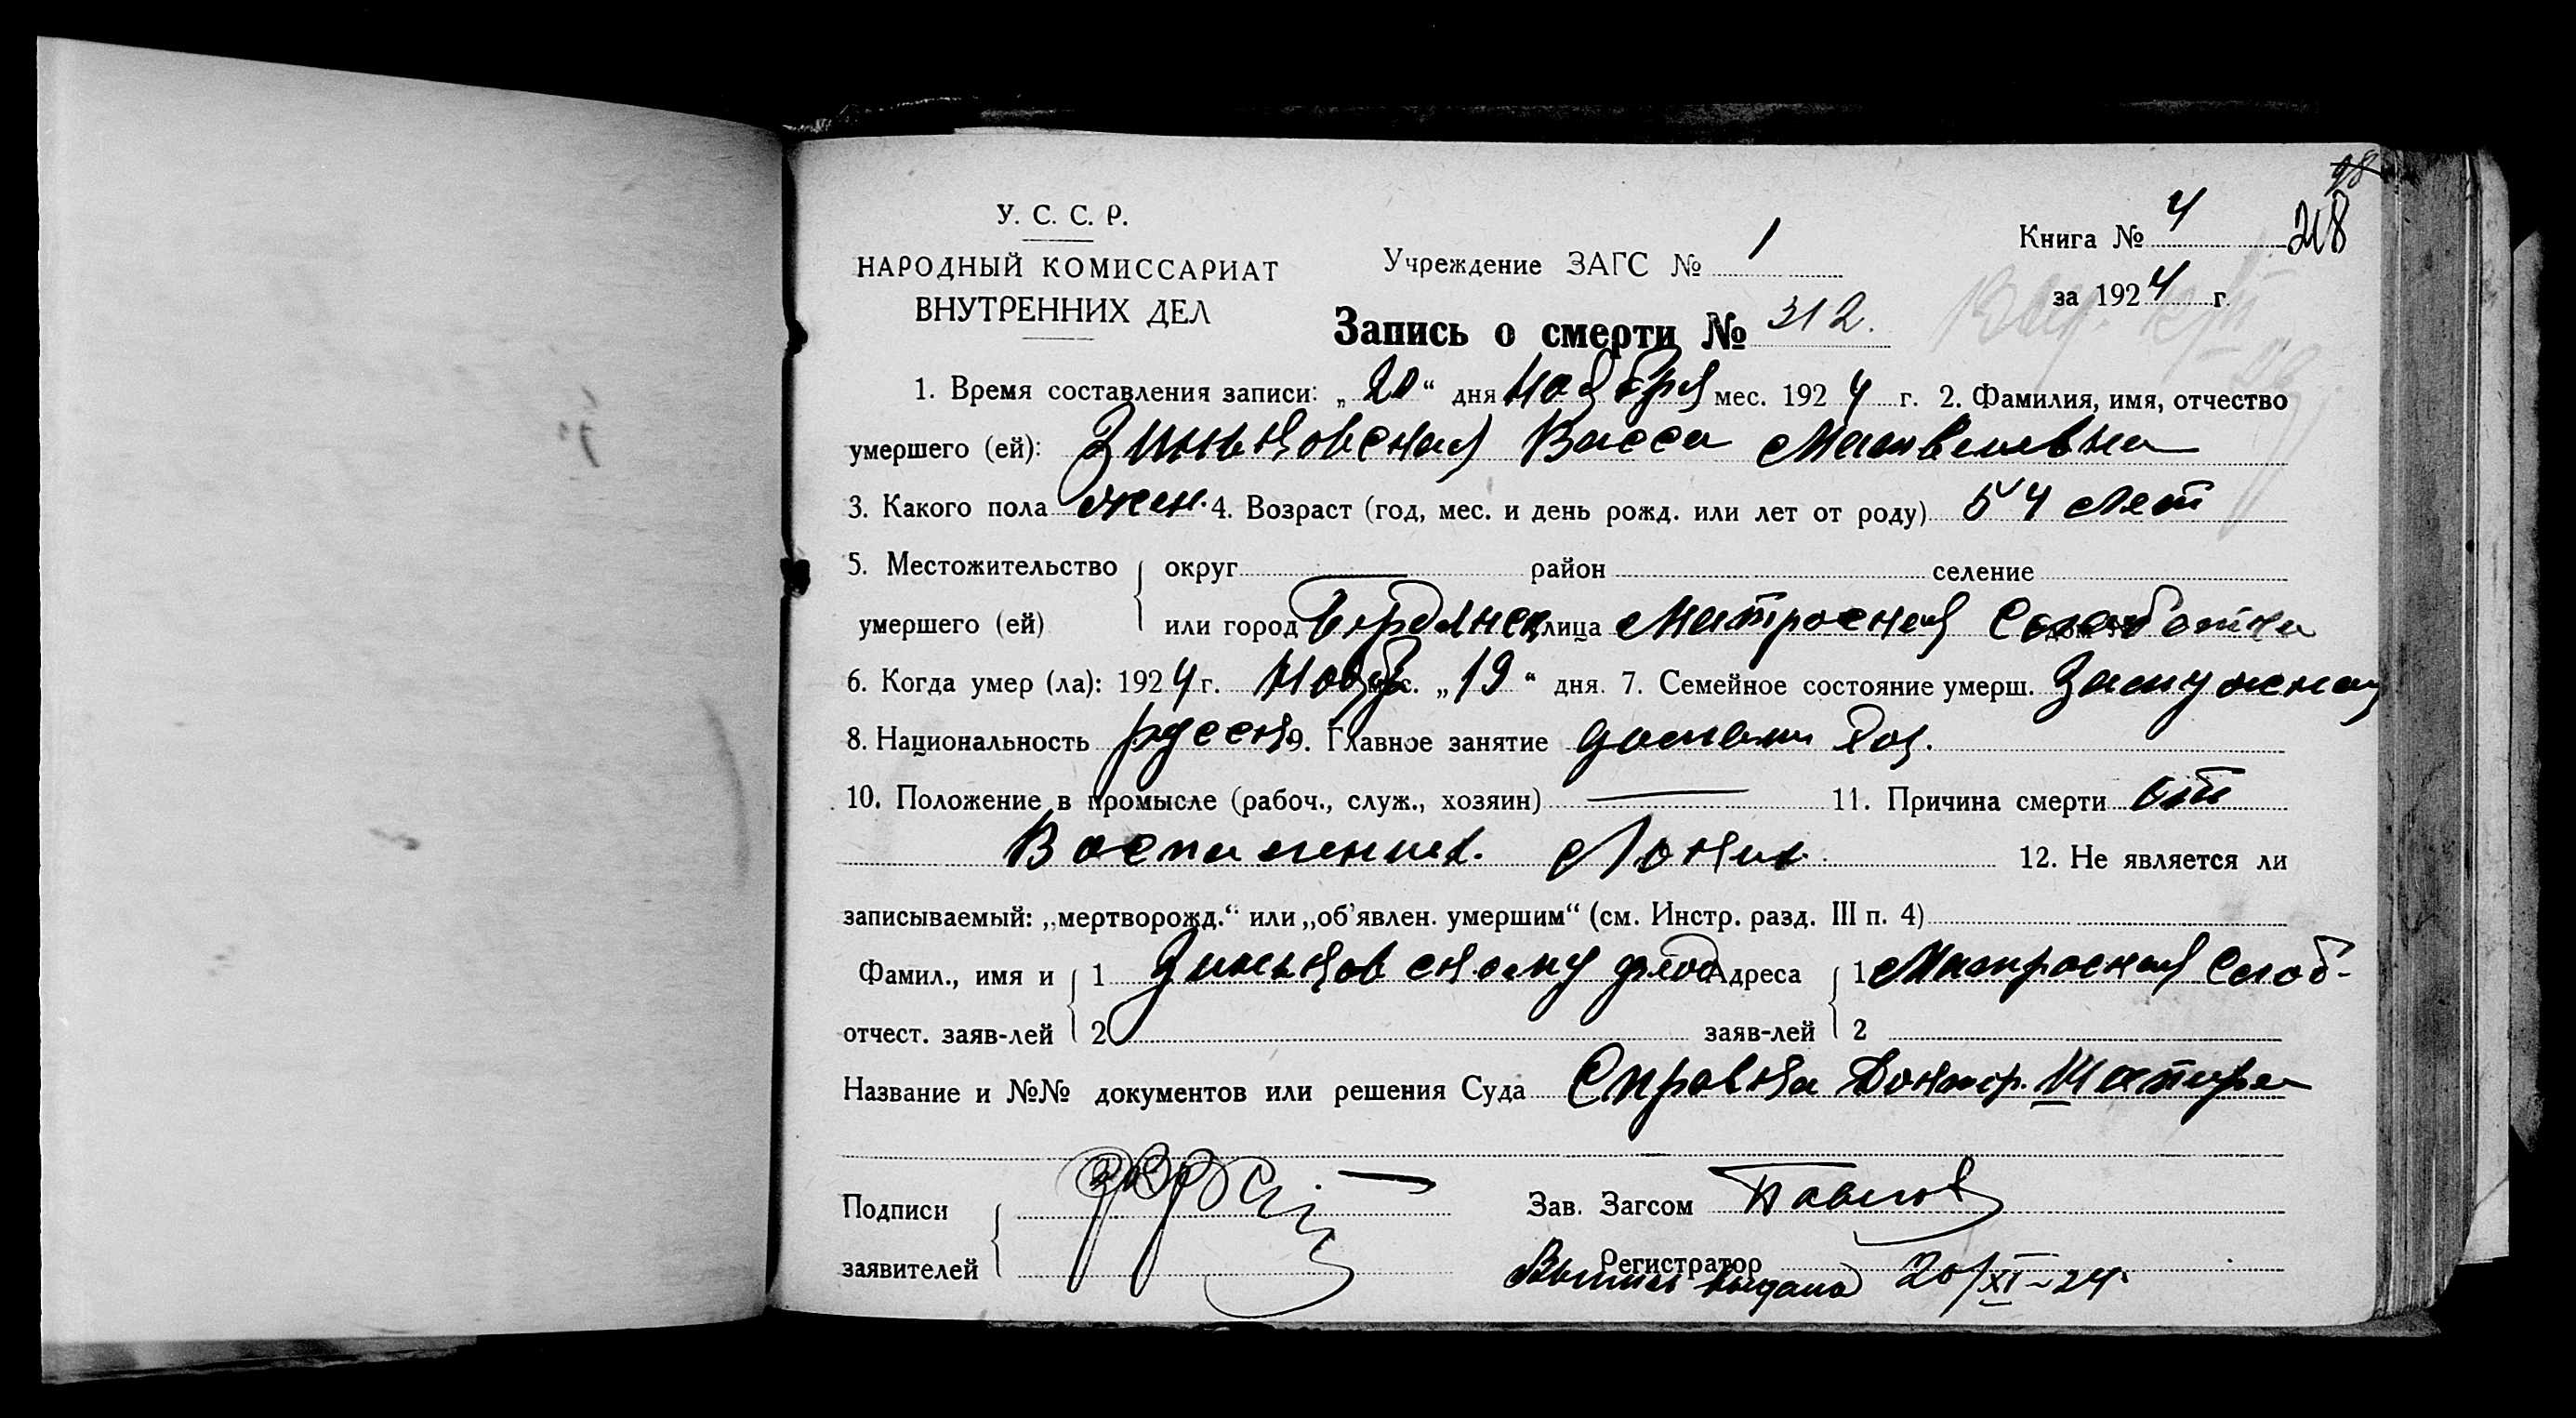 98
218
У. С. С. Р.
НАРОДНЫЙ КОМИССАРИАТ
ВНУТРЕННИХ ДЕЛ
Учреждение ЗАГС № 1
Книга № 4
за 1924 г.
Запись о смерти № 312.
1. Время составления записи: „20“ дня Ноября мес. 1924 г. 2. Фамилия, имя, отчество
умершего (ей): Зиньковская Васса Матвеевна
3. Какого пола жен. 4. Возраст (год, мес. и день рожд. или лет от роду) 54 лет
5. Местожительство округ район селение
умершего (ей) или город Бердянск улица Матросская Слободка
6. Когда умер (ла): 1924 г. Нояб мес. „19“ дня. 7. Семейное состояние умерш. Замужняя
8. Национальность русск 9. Главное занятие домашн хоз.
10. Положение в промысле (рабоч., служ., хозяин) — 11. Причина смерти от
Воспаления Легких 12. Не является ли
записываемый: „мертворожд.“ или „об'явлен. умершим“ (см. Инстр. разд. III п. 4)
Фамил., имя и 1 Зиньковскому Адреса 1 Матросская Слоб-
отчест. заяв-лей 2 заяв-лей 2
Название и №№ документов или решения Суда Справка
Подписи Зав. Загсом Павлов
заявителей Регистратор
Выпись выдана 20/XI-24